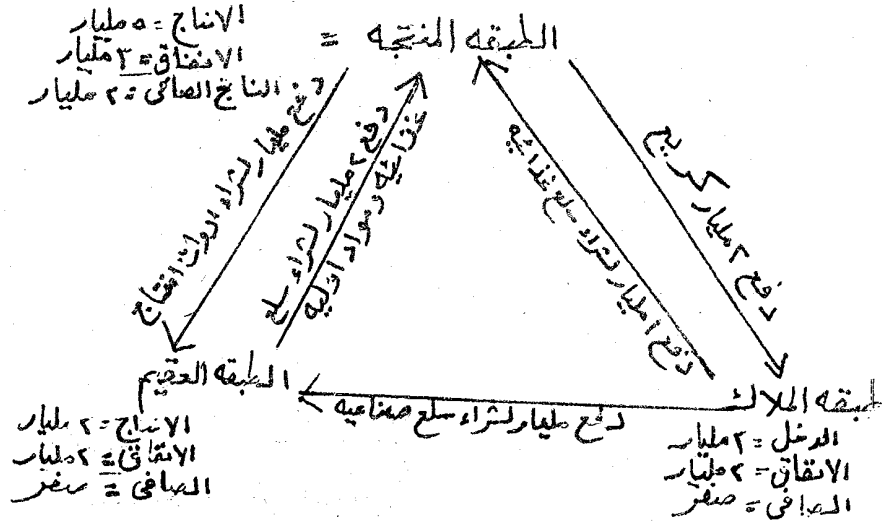 الانتاج = ٥ مليار
الانفاق = ٣ مليار
الناتج الصافي = ٢ مليار
الطبقه المنتجه =
دفع مليار لشراء ادوات انتاج
دفع ٢ مليار لشراء سلع
غذائيه ومواد اوليه
دفع ١ مليار لشراء سلع غذائيه
دفع ٢ مليار كريع
الطبقه العقيم
الانتاج = ٢ مليار
الانفاق = ٢ مليار
الصافي = صفر
دفع مليار لشراء سلع صناعيه
طبقه الملاك
الدخل = ٢ مليار
الانفاق = ٢ مليار
الصافي = صفر